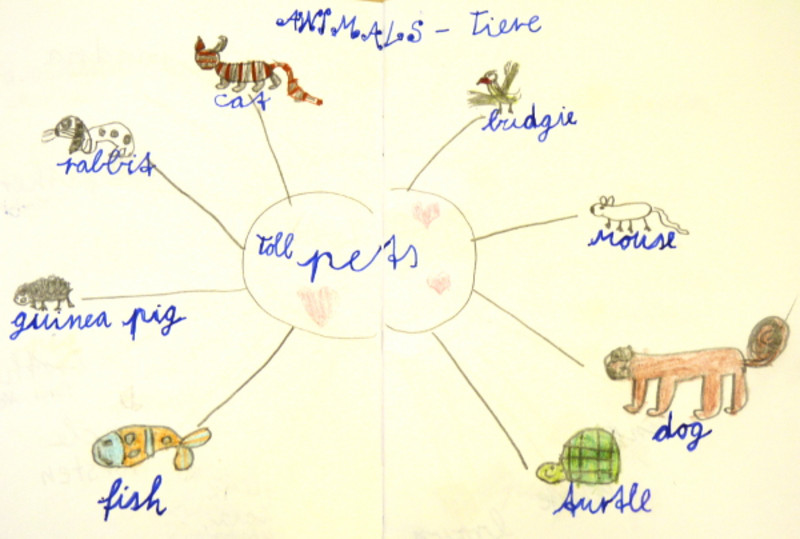 ANIMALS - Tiere
cat
budgie
rabbit
mouse
toll pets
guinea pig
dog
fish
turtle